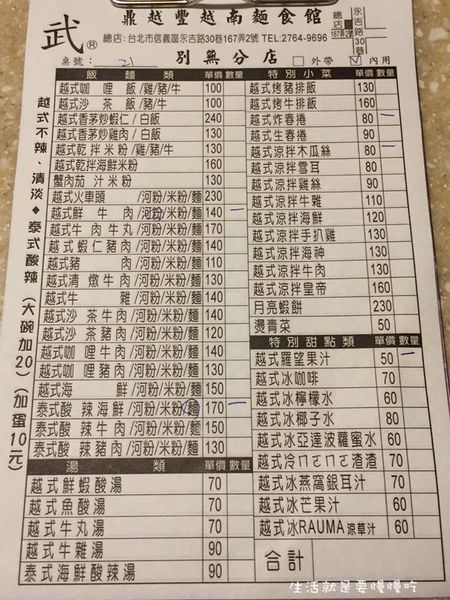 武®
鼎越豐越南麵食館
總店：台北市信義區永吉路30巷167弄2號 TEL:2764-9696
別無分店
總店
167弄2號
永吉路30巷
桌號： 21
外帶 內用
越式不辣、清淡◆泰式酸辣（大碗加20）（加蛋10元）
飯麵類 單價 數量
越式咖哩飯/雞/豬/牛 100
越式沙茶飯/豬/牛 100
越式香茅炒蝦仁/白飯 240
越式香茅炒雞肉/白飯 130
越式乾拌米粉/雞/豬/牛 130
越式乾拌海鮮米粉 160
蟹肉茄汁米粉 130
越式火車頭/河粉/米粉/麵 230
越式鮮牛肉/河粉/米粉/麵 140 一
越式牛肉牛丸/河粉/米粉/麵 170
越式蝦仁豬肉/河粉/米粉/麵 140
越式豬肉/河粉/米粉/麵 110
越式清燉牛肉/河粉/米粉/麵 130
越式牛雜/河粉/米粉/麵 140
越式沙茶牛肉/河粉/米粉/麵 140
越式沙茶豬肉/河粉/米粉/麵 120
越式咖哩牛肉/河粉/米粉/麵 140
越式咖哩豬肉/河粉/米粉/麵 130
越式海鮮/河粉/米粉/麵 150
泰式酸辣海鮮/河粉/米粉/麵 170 一
泰式酸辣牛肉/河粉/米粉/麵 150
泰式酸辣豬肉/河粉/米粉/麵 130
湯類 單價 數量
越式鮮蝦酸湯 70
越式魚酸湯 70
越式牛丸湯 70
越式牛雜湯 90
泰式海鮮酸辣湯 90
特別小菜 單價 數量
越式烤豬排飯 130
越式烤牛排飯 160
越式炸春捲 80 一
越式生春捲 90
越式涼拌木瓜絲 80 一
越式涼拌雪耳 80
越式涼拌雞絲 90
越式涼拌牛雜 110
越式涼拌海鮮 120
越式涼拌手扒雞 120
越式涼拌海神 130
越式涼拌牛肉 130
越式涼拌皇帝 160
月亮蝦餅 230
燙青菜 50
特別甜點類 單價 數量
越式羅望果汁 50 一
越式冰咖啡 70
越式冰檸檬水 60
越式冰椰子水 80
越式冰亞達菠蘿蜜水 60
越式冷ㄇㄛㄇㄛ渣渣 70
越式冰燕窩銀耳汁 70
越式冰芒果汁 60
越式冰RAUMA涼草汁 60
合計
生活就是要慢慢吃